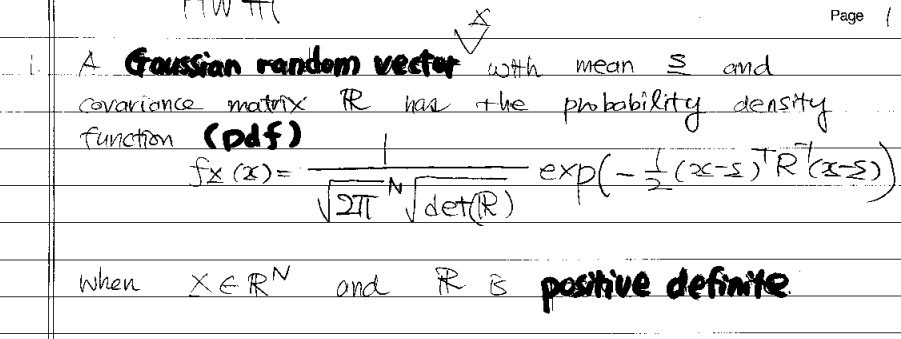 HW #1
Page 1
X
1. A Gaussian random vector with mean s and
covariance matrix ℝ has the probability density
function (pdf)
fx(x) = 1 / (√2π^N √det(ℝ)) exp(-1/2 (x-s)^T R^-1 (x-s))
when X ∈ ℝ^N and ℝ is positive definite.